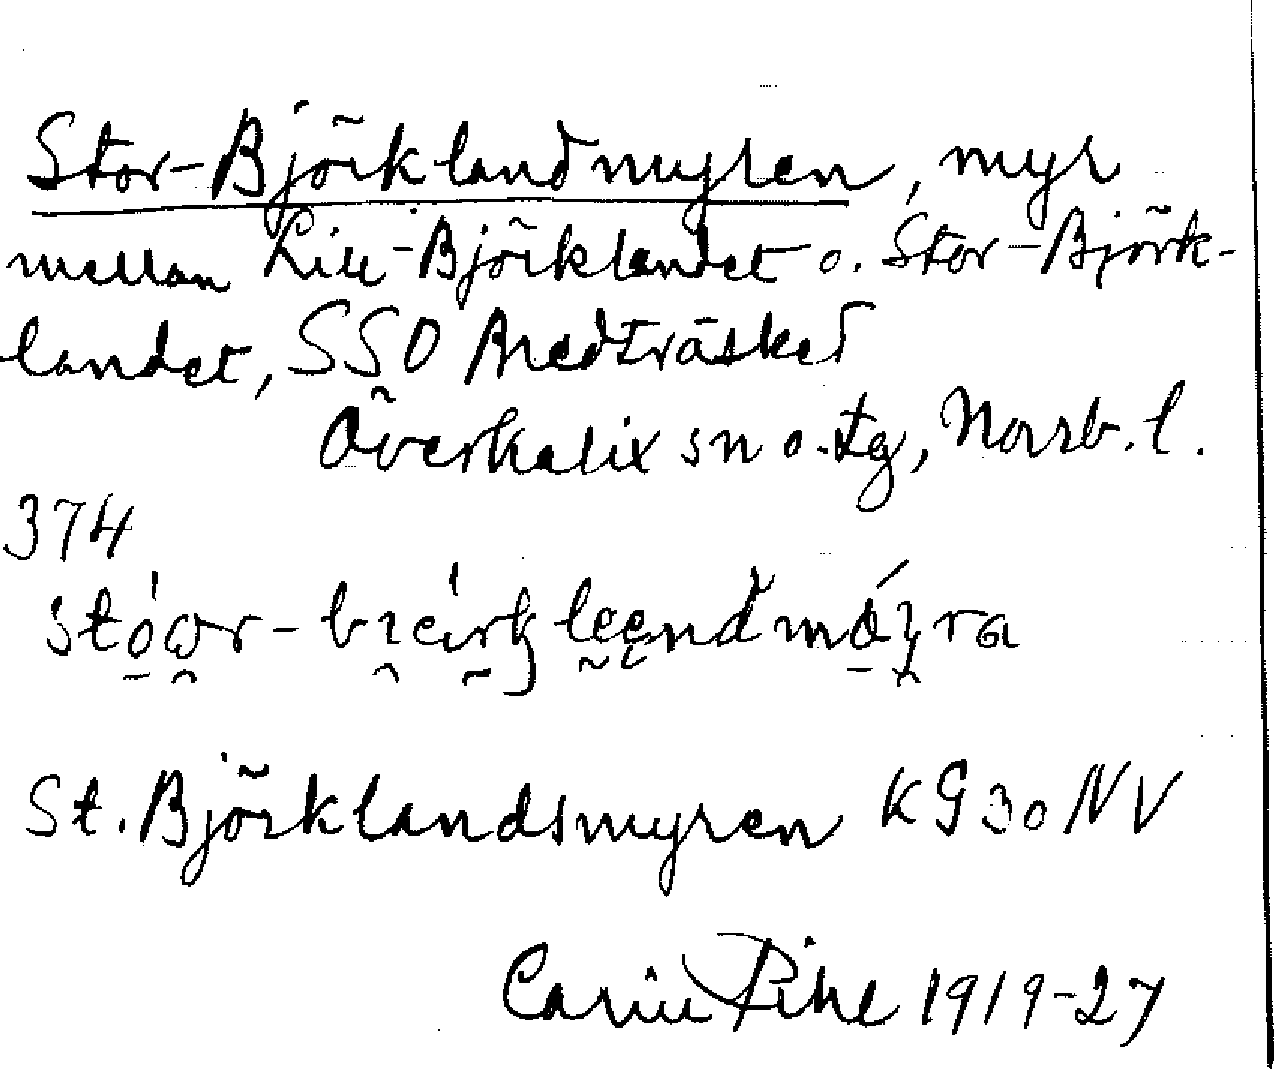 Stor-Björklandmyren, myr
mellan Lill-Björklandet o. Stor-Björk-
landet, SSO Bredträsket
Överkalix sn o. tg, Norrb. l.
374
St. Björklandsmyren KG30 NV
Carin Pihl 1919-27